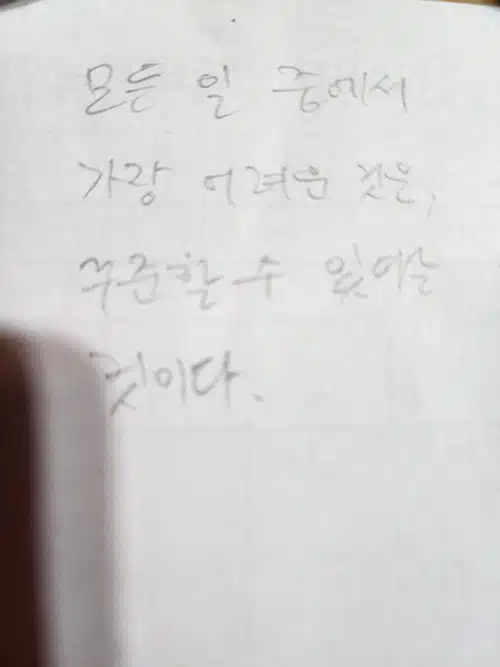 모든 일 중에서
가장 어려운 것은,
꾸준할 수 있어는
것이다.